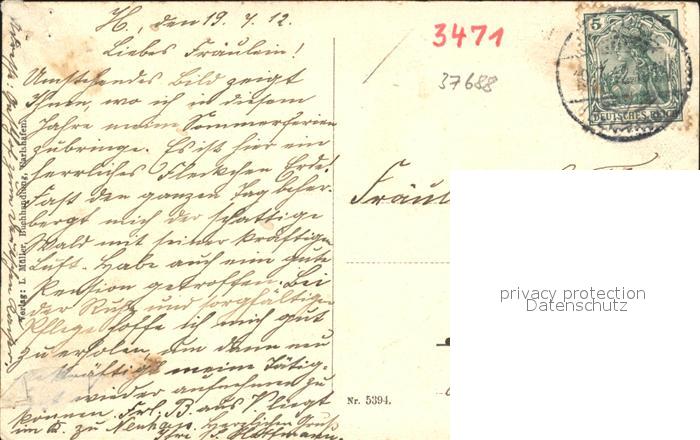 H., den 19. 7. 12.
Liebes Fräulein!
Umstehendes Bild zeigt
Ihnen, wo ich in diesem
Jahre meine Sommerferien
zubringe. Es ist hier ein
herrliches Fleckchen Erde!
Fast den ganzen Tag beher-
bergt mich der schattige
Wald mit seiner kräftigen
Luft. Habe auch eine gute
Pension getroffen. Bei
der Ruhe und sorgfältigen
Pflege hoffe ich mich gut
zu erholen, um dann neu
gekräftigt meine Tätig-
wieder aufnehmen zu
können. Frl. B. aus
zu Herzlichen Gruß
Verlag: L. Müller, Buchhandlung,
3471
37688
5 5
DEUTSCHES REICH
Fräul
privacy protection
Datenschutz
Nr. 5394.